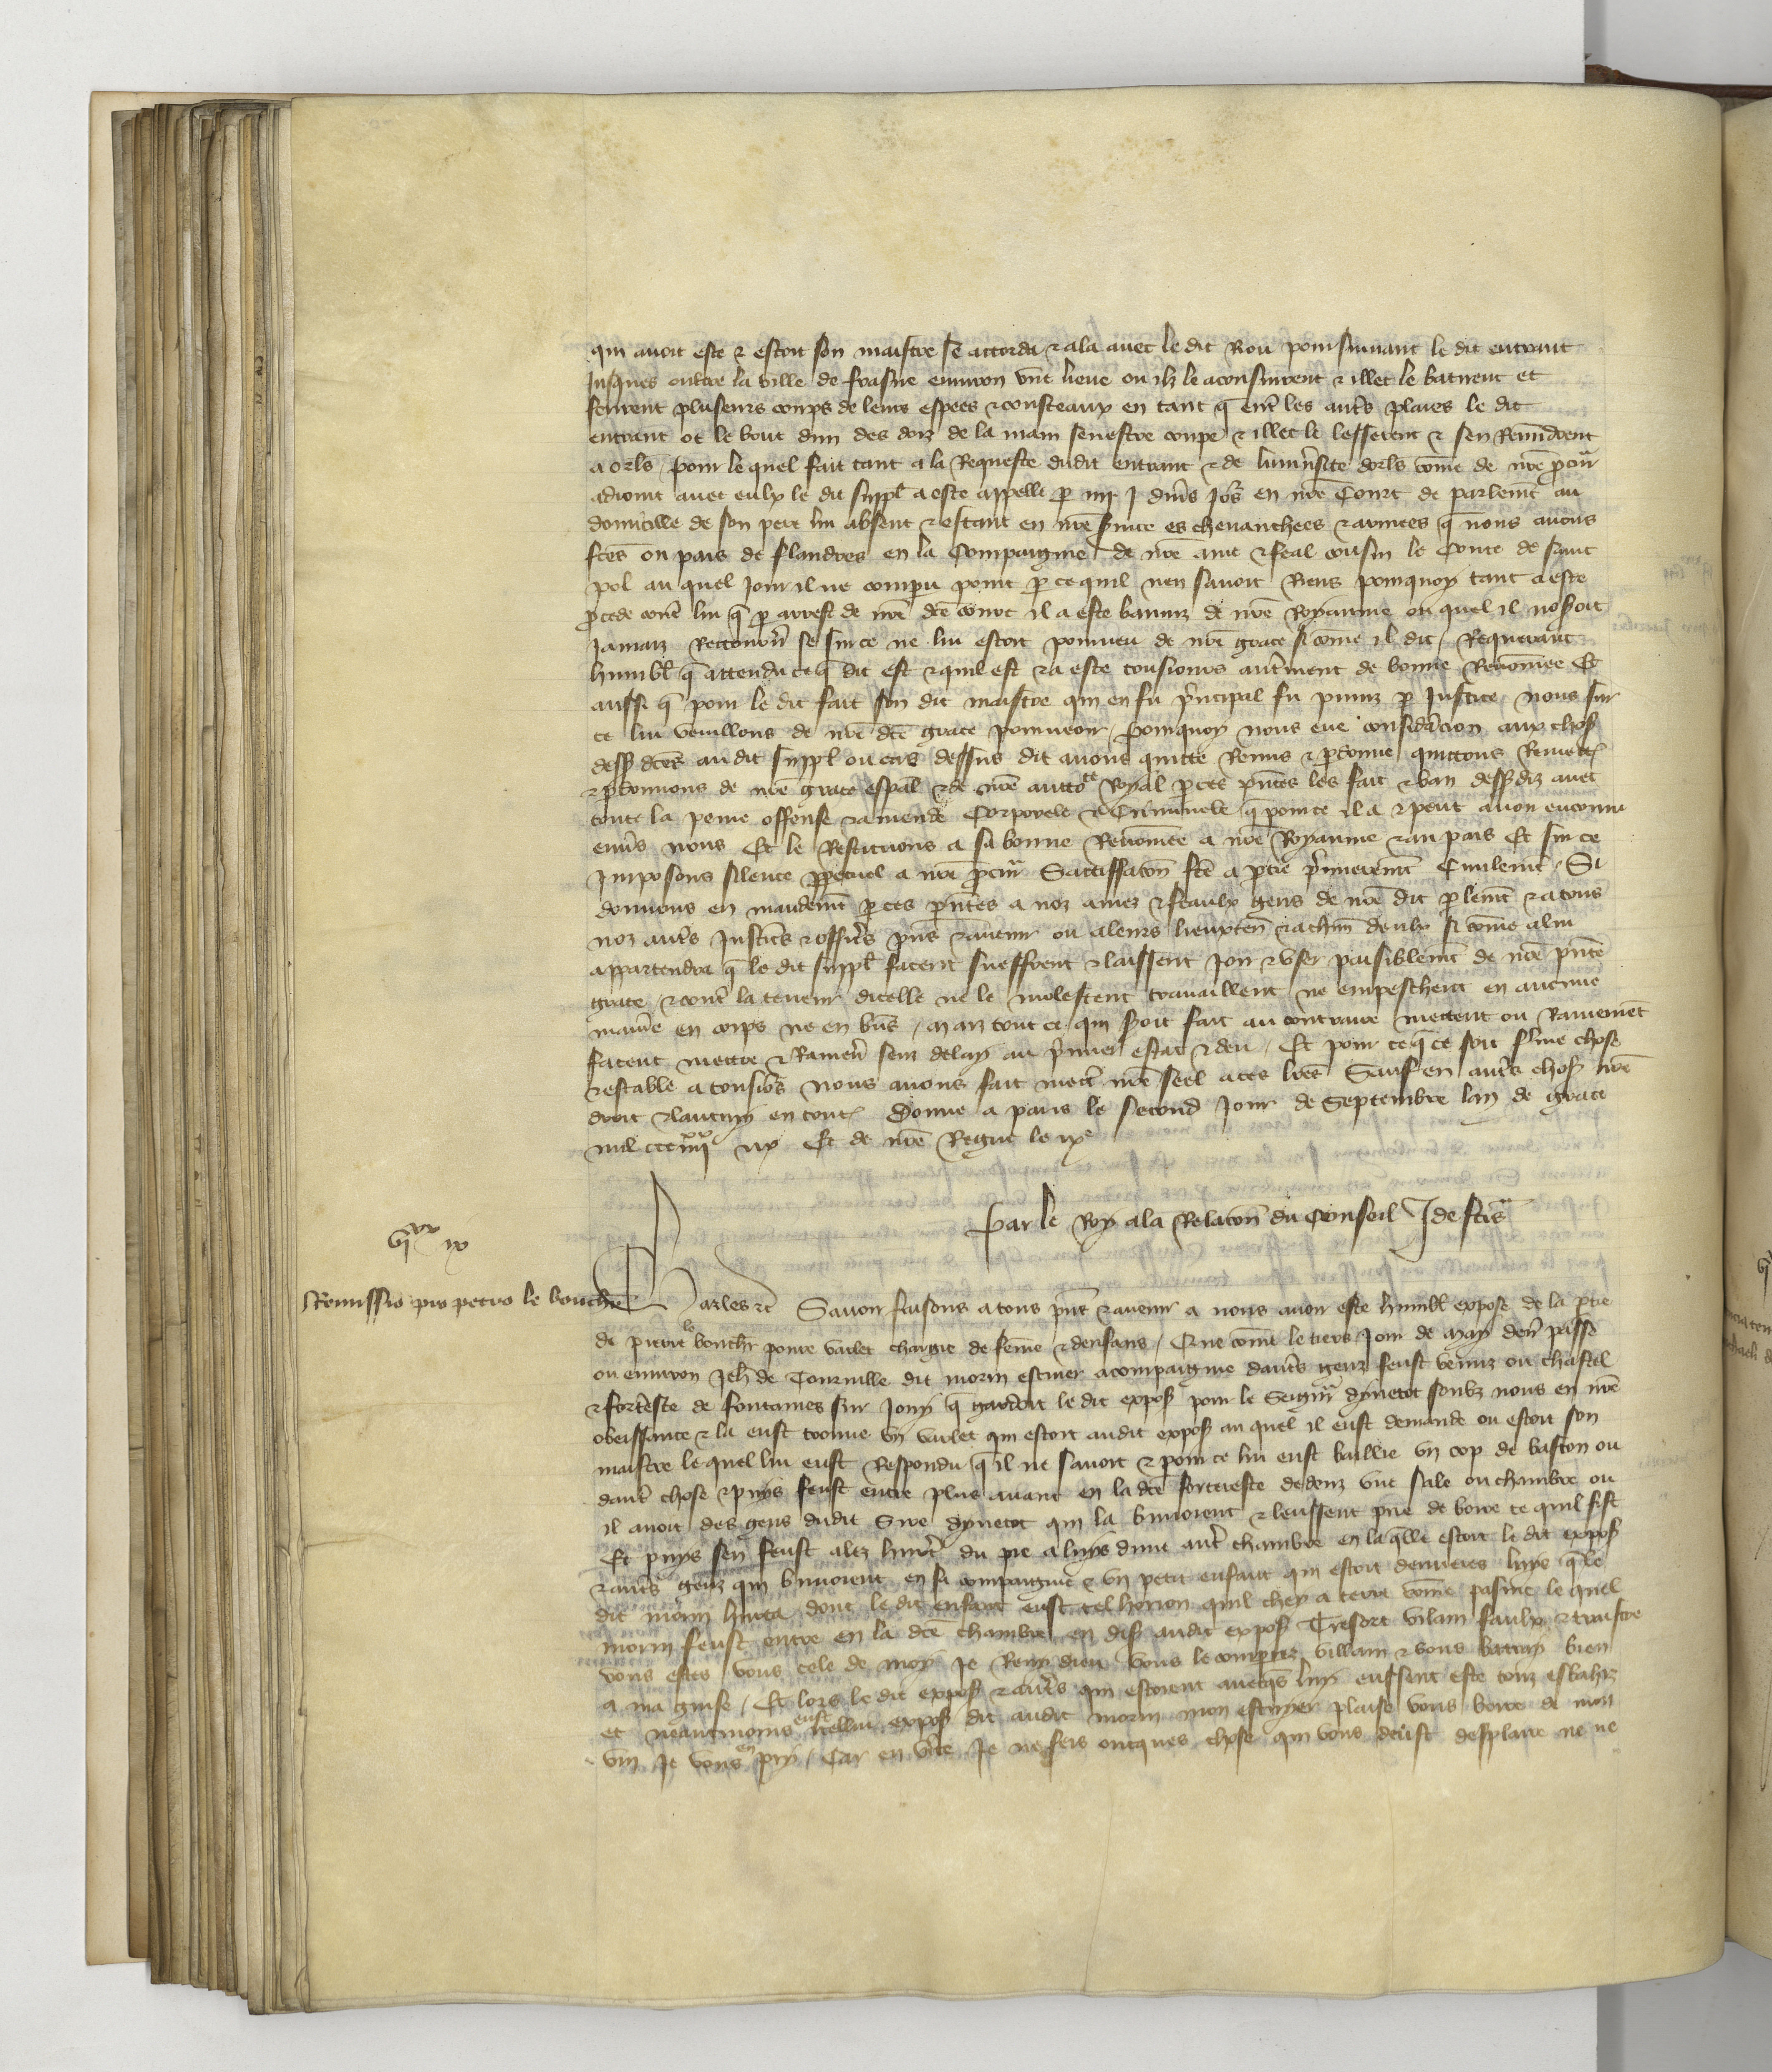 qui avoit este et estoit son maistre se accorda et ala avec le dit Rou poursuivant le dit entrant
Jusques oultre la ville de frasne environ une lieue ou ilz le aconsuirent et illec le batirent et
ferirent pluseurs coups de leurs espees et cousteaux en tant que entre les autres plaies le dit
entrant ot le bout dun des doiz de la main senestre coupe et illec le lesserent et sen Revindrent
a orls pour le quel fait tant a la Requeste dudit entrant et de luniversite dorls comme de nre procur
adjoint avec eulx le dit suppl a este appelle par iiij jours en nre Court de parlement au
domicille de son pere lui absent et estant en nre service es chevauchees et armees que nous avons
fces ou pais de flandres en la Compaignie de nre ame et feal cousin le Conte de saint
pol au quel Jour il ne comparu point par ce quil nen savoit Riens pourquoy tant a este
procede contre lui que par arrest de nre dce court il a este banniz de nre Royaume ou quel il noseroit
Jamaiz Retourner se sur ce ne lui estoit pourveu de nre grace si come il dit / Requerant
humbl que attendu ce que dit est et quil est et a este tousjours autrement de bonne Renommee Et
aussi que pour le dit fait son dit maistre qui en fu principal fu puniz par Justice nous sur
ce lui vueillons de nre dce grace pourveoir / Pourquoy nous eue consideracion aux choses
dessus dces au dit suppl ou cas dessus dit avons quitte Remis et pardonne quittons Remettons
et pardonnons de nre grace espal et de nre auctorite Royal par ces pntes les fait et ban dessus diz avec
toute la peine offense et amende Corporele et Criminele que pour ce il a et peut avoir encouru
envers nous Et le Restituons a sa bonne Renommee a nre Royaume et au pais Et sur ce
Imposons silence perpetuel a nre procur Satisfacon fce a partie premierement Civilement / Si
donnons en mandement par ces pntes a noz amez et feaulx gens de nre dit parlement et a tous
noz autres Justiciers et officiers pns et avenir ou a leurs lieuxten et a chun deulx si comme a lui
appartendra que le dit suppl facent sueffrent et laissent Joir et user paisiblement de nre pnte
grace et contre la teneur dicelle ne le molestent travaillent ne empeschent en aucune
maniere en corps ne en biens / Maiz tout ce qui seroit fait au contraire mettent ou Ramenent
facent mettre et Ramener senz delay au premier estat et deu / Et pour ce que ce soit ferme chose
et estable a tousjours nous avons fait mettre nre seel a ces lres Sauf en autres choses nre
droit et lautruy en toutes Donne a paris le second Jour de Septembre lan de grace
mil ccc iiijxx ix Et de nre Regne le ixe
Par le Roy a la Relacon du Conseil J de scis
vixx ix
Remissio pro petro le bouchr
Charles etc Savoir faisons a tous pns et avenir a nous avoir este humbl expose de la partie
de pierre le bouchr povre varlet chargie de femme et denfans / Que comme le tiers Jour de May dern passe
ou environ Jeh de Tournille dit morin escuier acompaignie dautres genz feust venuz ou chastel
et forteresce de fontaines sur Jony que gardoit le dit expos pour le Seigneur dyvetot soubz nous en nre
obeissance et la eust trouve un varlet qui estoit audit expos au quel il eust demande ou estoit son
maistre le quel lui eust Respondu que il ne savoit et pour ce lui eust baillie un cop de baston ou
dautre chose et puys feust entre plus avant en la dce forteresce dedenz une sale ou chambre ou
il avoit des gens dudit Sire dyvetot qui la buvoient et leussent prie de boire ce quil fist
Et puys sen feust alez hurter du pie a luys dune autre chambre en la quelle estoit le dit expos
et autres genz qui buvoient en sa compaignie et un petit enfant qui estoit derrieres luys que le
dit morin hurta dont le dit enfant eust tel horion quil chey a terre comme pasme le quel
morin feust entre en la dce chambre en dis audit expos Tresort vilain faulx et traistre
vous estes vous cele de moy Je Reny dieu vous le comparrez villain et vous batray bien
a ma guise / Et lors le dit expos et autres qui estoient avecques luy eussent este touz esbahiz
et neantmoins eust icellui expos dit audit morin mon escuyer plaise vous boire de mon
vin Je vous en pry / Car en verite Je ne feis oncques chose qui vous deust desplaire ne ne